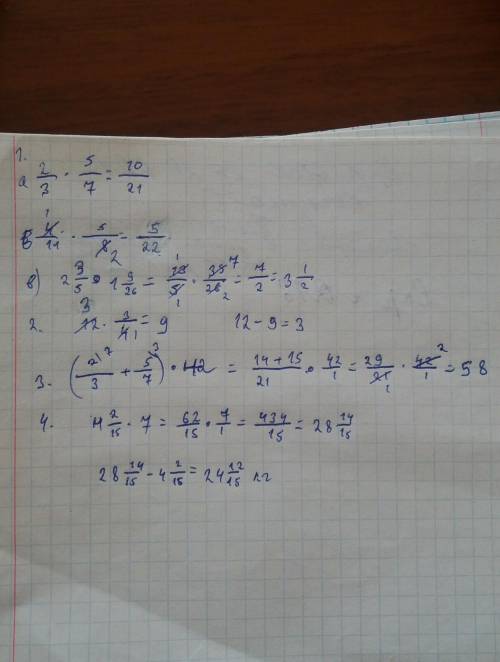 1.
а 2/3 · 5/7 = 10/21
б 4/11 · 5/8 2 = 5/22
в) 2 3/5 · 1 9/26 = 13/5 · 35/26 = 7/2 = 3 1/2
2. 12 · 3/4 = 9 12 - 9 = 3
3. (2/3 + 5/7) · 42 = 14 + 15/21 · 42/1 = 29/21 · 42/1 = 58
4. 4 2/15 · 7 = 62/15 · 7/1 = 434/15 = 28 14/15
28 14/15 - 4 2/15 = 24 12/15 кг